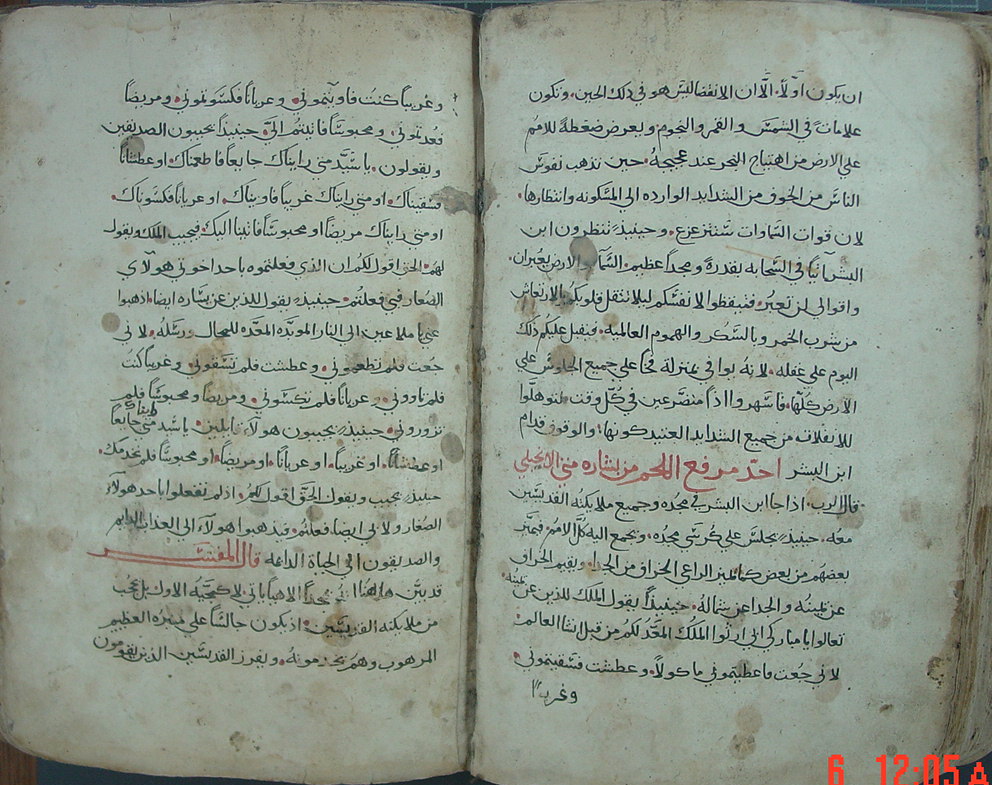 ان يكون اولاً. الّا ان الانقضا ليس هو في ذلك الحين. وتكون
علامات في الشمس والقمر والنجوم ويعرض ضغطة للامم
علي الارض من اهتياج البحر عند عجيجه. حين تذهب نفوس
الناس من الخوف من الشدايد الوارده الي المسكونه وانتظارها.
لان قوات السماوات ستتزعزع. وحينيذٍ تنظرون ابن
البشر آتياً في السحابه بقدرة ومجداً عظيم. السما والارض يعبران.
واقوالي لن تعبر. فتيقظوا لانفسكم ليلا تثقل قلوبكم بالارتعاش
من شرب الخمر وبالسكر والهموم العالميه. فيقبل عليكم ذلك
اليوم علي غفله. لانه يوافي بمنزلة فخاً علي جميع الجلوس علي
الارض كلها. فاسهروا اذاً متضرعين في كل وقت. لتوهلوا
للانفلات من جميع الشدايد العتيد كونها. والوقوف قدام
ابن البشر احد مرفع اللحم من بشاره متي الانجيلي
قال الرب. اذا جا ابن البشر في مجده وجميع ملايكته القديسين
معه. حينيذٍ يجلس علي كرسي مجده. وتجمع اليه كل الامم. فيميز
بعضهم من بعض كما يميز الراعي الخراف من الجدا. ويقيم الخراف
عن يمينه والجدا عن شماله. حينيذاً يقول الملك للذين عن يمينه.
تعالوا يا مباركي ابي ارثوا الملك المعد لكم من قبل انشا العالم.
لاني جعت فاعطيتموني ماكولاً. وعطشت فسقيتموني.
وغريبا
وغريباً كنت فاويتموني. وعرياناً فكسوتموني. ومريضاً
فعدتموني. ومحبوساً فاتيتم اليّ. حينيذاً يجيبون الصديقين
ويقولون. يا سيد متي رايناك جايعاً فاطعمناك. او عطشاناً
فسقيناك. او متي رايناك غريباً فاويناك. او عرياناً فكسوناك.
او متي رايناك مريضاً او محبوساً فاتينا اليك. فيجيب الملك ويقول
لهم. الحق اقول لكم ان الذي فعلتموه باحد اخوتي هولاي
الصغار فبي فعلتم. حينيذٍ يقول للذين عن يساره ايضا. اذهبوا
عني يا ملاعين الي النار الموبده المعده للمحال ورسله. لاني
جعت فلم تطعموني. وعطشت فلم تسقوني. وغريباً كنت
فلم تاووني. وعرياناً فلم تكسوني. ومريضاً ومحبوساً فلم
تزوروني. حينيذٍ يجيبون هولاء قايلين. يا سيد متي رايناك جايعاً
او عطشاناً. او غريباً. او عرياناً. او مريضاً. او محبوساً فلم نخدمك.
حينيذٍ يجيب ويقول الحق اقول لكم. اذ لم تفعلوا باحد هولاء
الصغار ولا بي ايضا فعلتم. فيذهبوا هولاء الي العذاب الدايم
والصديقون الي الحياة الداعه قال المفسر
قد بين هاهنا مجداً الاهيا ياتي لا كمجيه الاول بل محب
من ملايكته القديسين. اذ يكون جالساً علي منبره العظيم
المرهوب وهم يخدمونه. ويفرز القديسين الذين يقومون
6 12:05 A